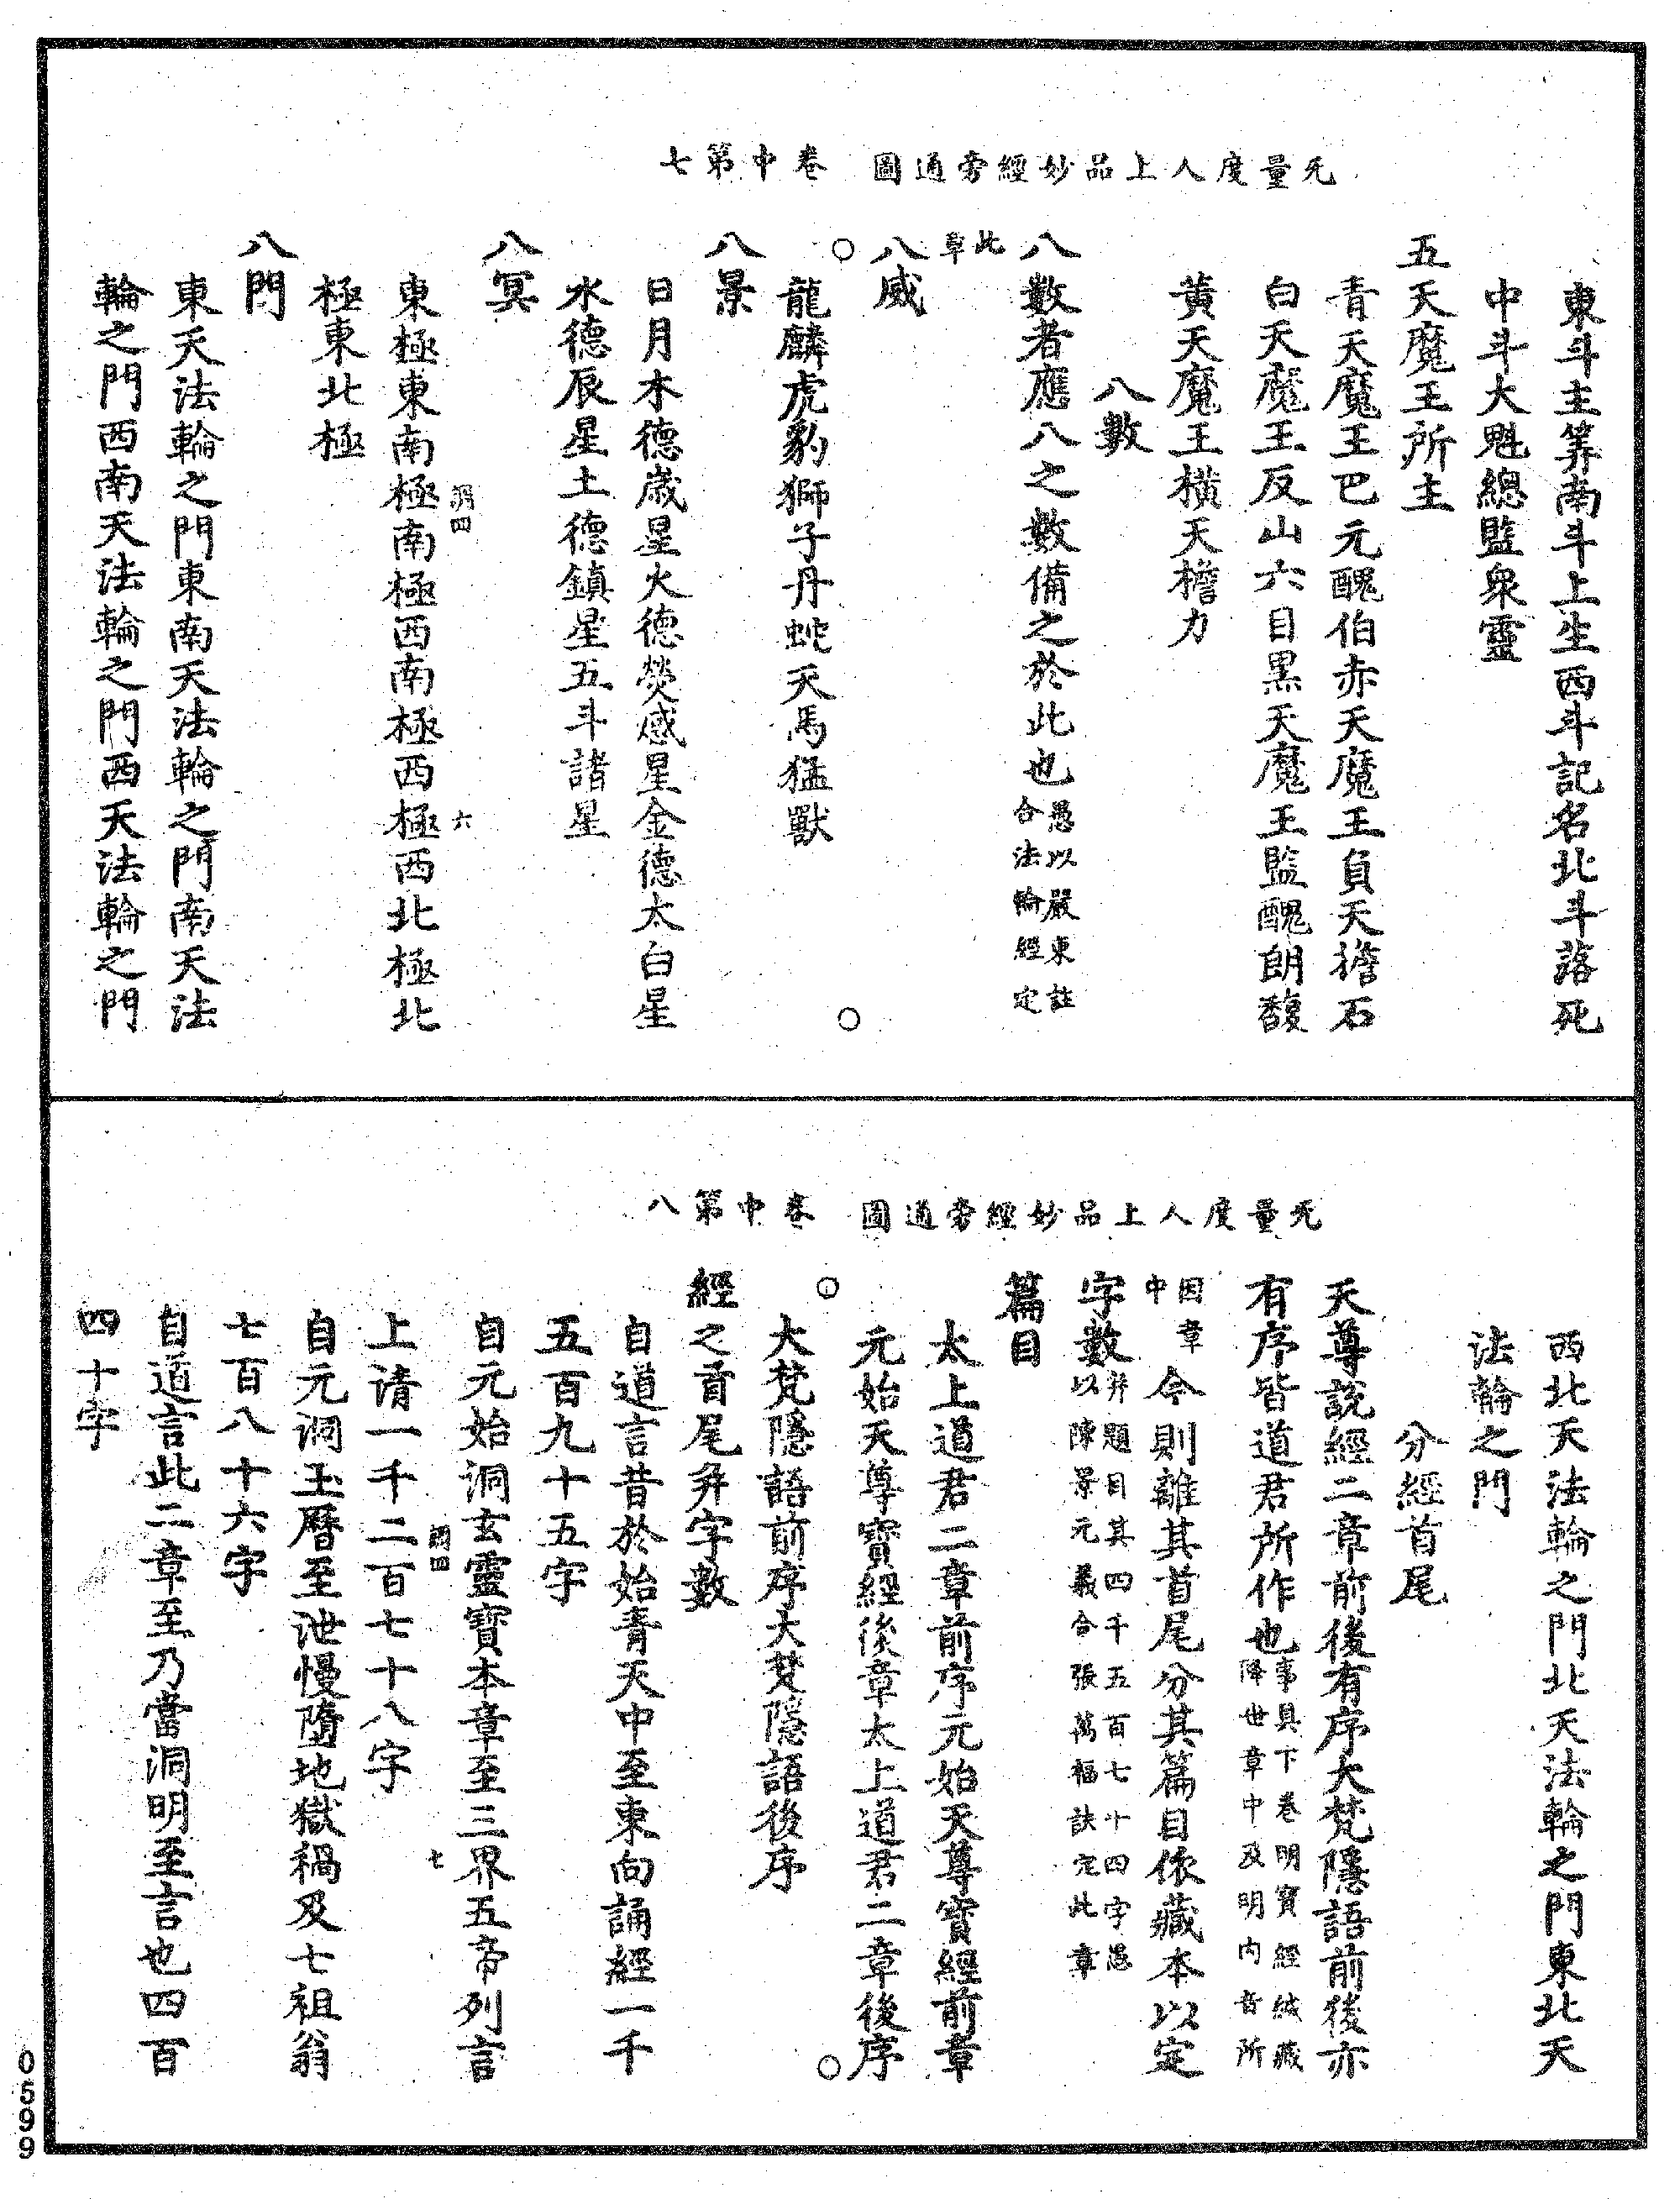 无量度人上品妙經旁通圖 卷中第七
東斗主筭南斗上生西斗記名北斗落死
中斗大魁總監衆靈
五天魔王所主
青天魔王巴元醜伯赤天魔王負天擔石
白天魔王反山六目黑天魔王監醜朗馥
黃天魔王橫天檐力
八數
八數者應八之數備之於此也愚以嚴東註
合法輪經定
此
章
八威
龍麟虎豹獅子丹蛇天馬猛獸
八景
日月木德歲星火德熒惑星金德太白星
水德辰星土德鎮星五斗諸星
八冥
洞四 六
東極東南極南極西南極西極西北極北
極東北極
八門
東天法輪之門東南天法輪之門南天法
輪之門西南天法輪之門西天法輪之門
无量度人上品妙經旁通圖 卷中第八
西北天法輪之門北天法輪之門東北天
法輪之門
分經首尾
天尊說經二章前後有序大梵隱語前後亦
有序皆道君所作也事具下卷明寶經緘藏
降世章中及明內音所
因章
中
今則離其首尾分其篇目依藏本以定
字數并題目其四千五百七十四字愚
以陳景元義合張萬福訣定此章
篇目
太上道君二章前序元始天尊寶經前章
元始天尊寶經後章太上道君二章後序
大梵隱語前序大梵隱語後序
經之首尾并字數
自道言昔於始青天中至東向誦經一千
五百九十五字
自元始洞玄靈寶本章至三界五帝列言
洞四 七
上清一千二百七十八字
自元洞玉曆至泄慢墮地獄禍及七祖翁
七百八十六字
自道言此二章至乃當洞明至言也四百
四十字
0599